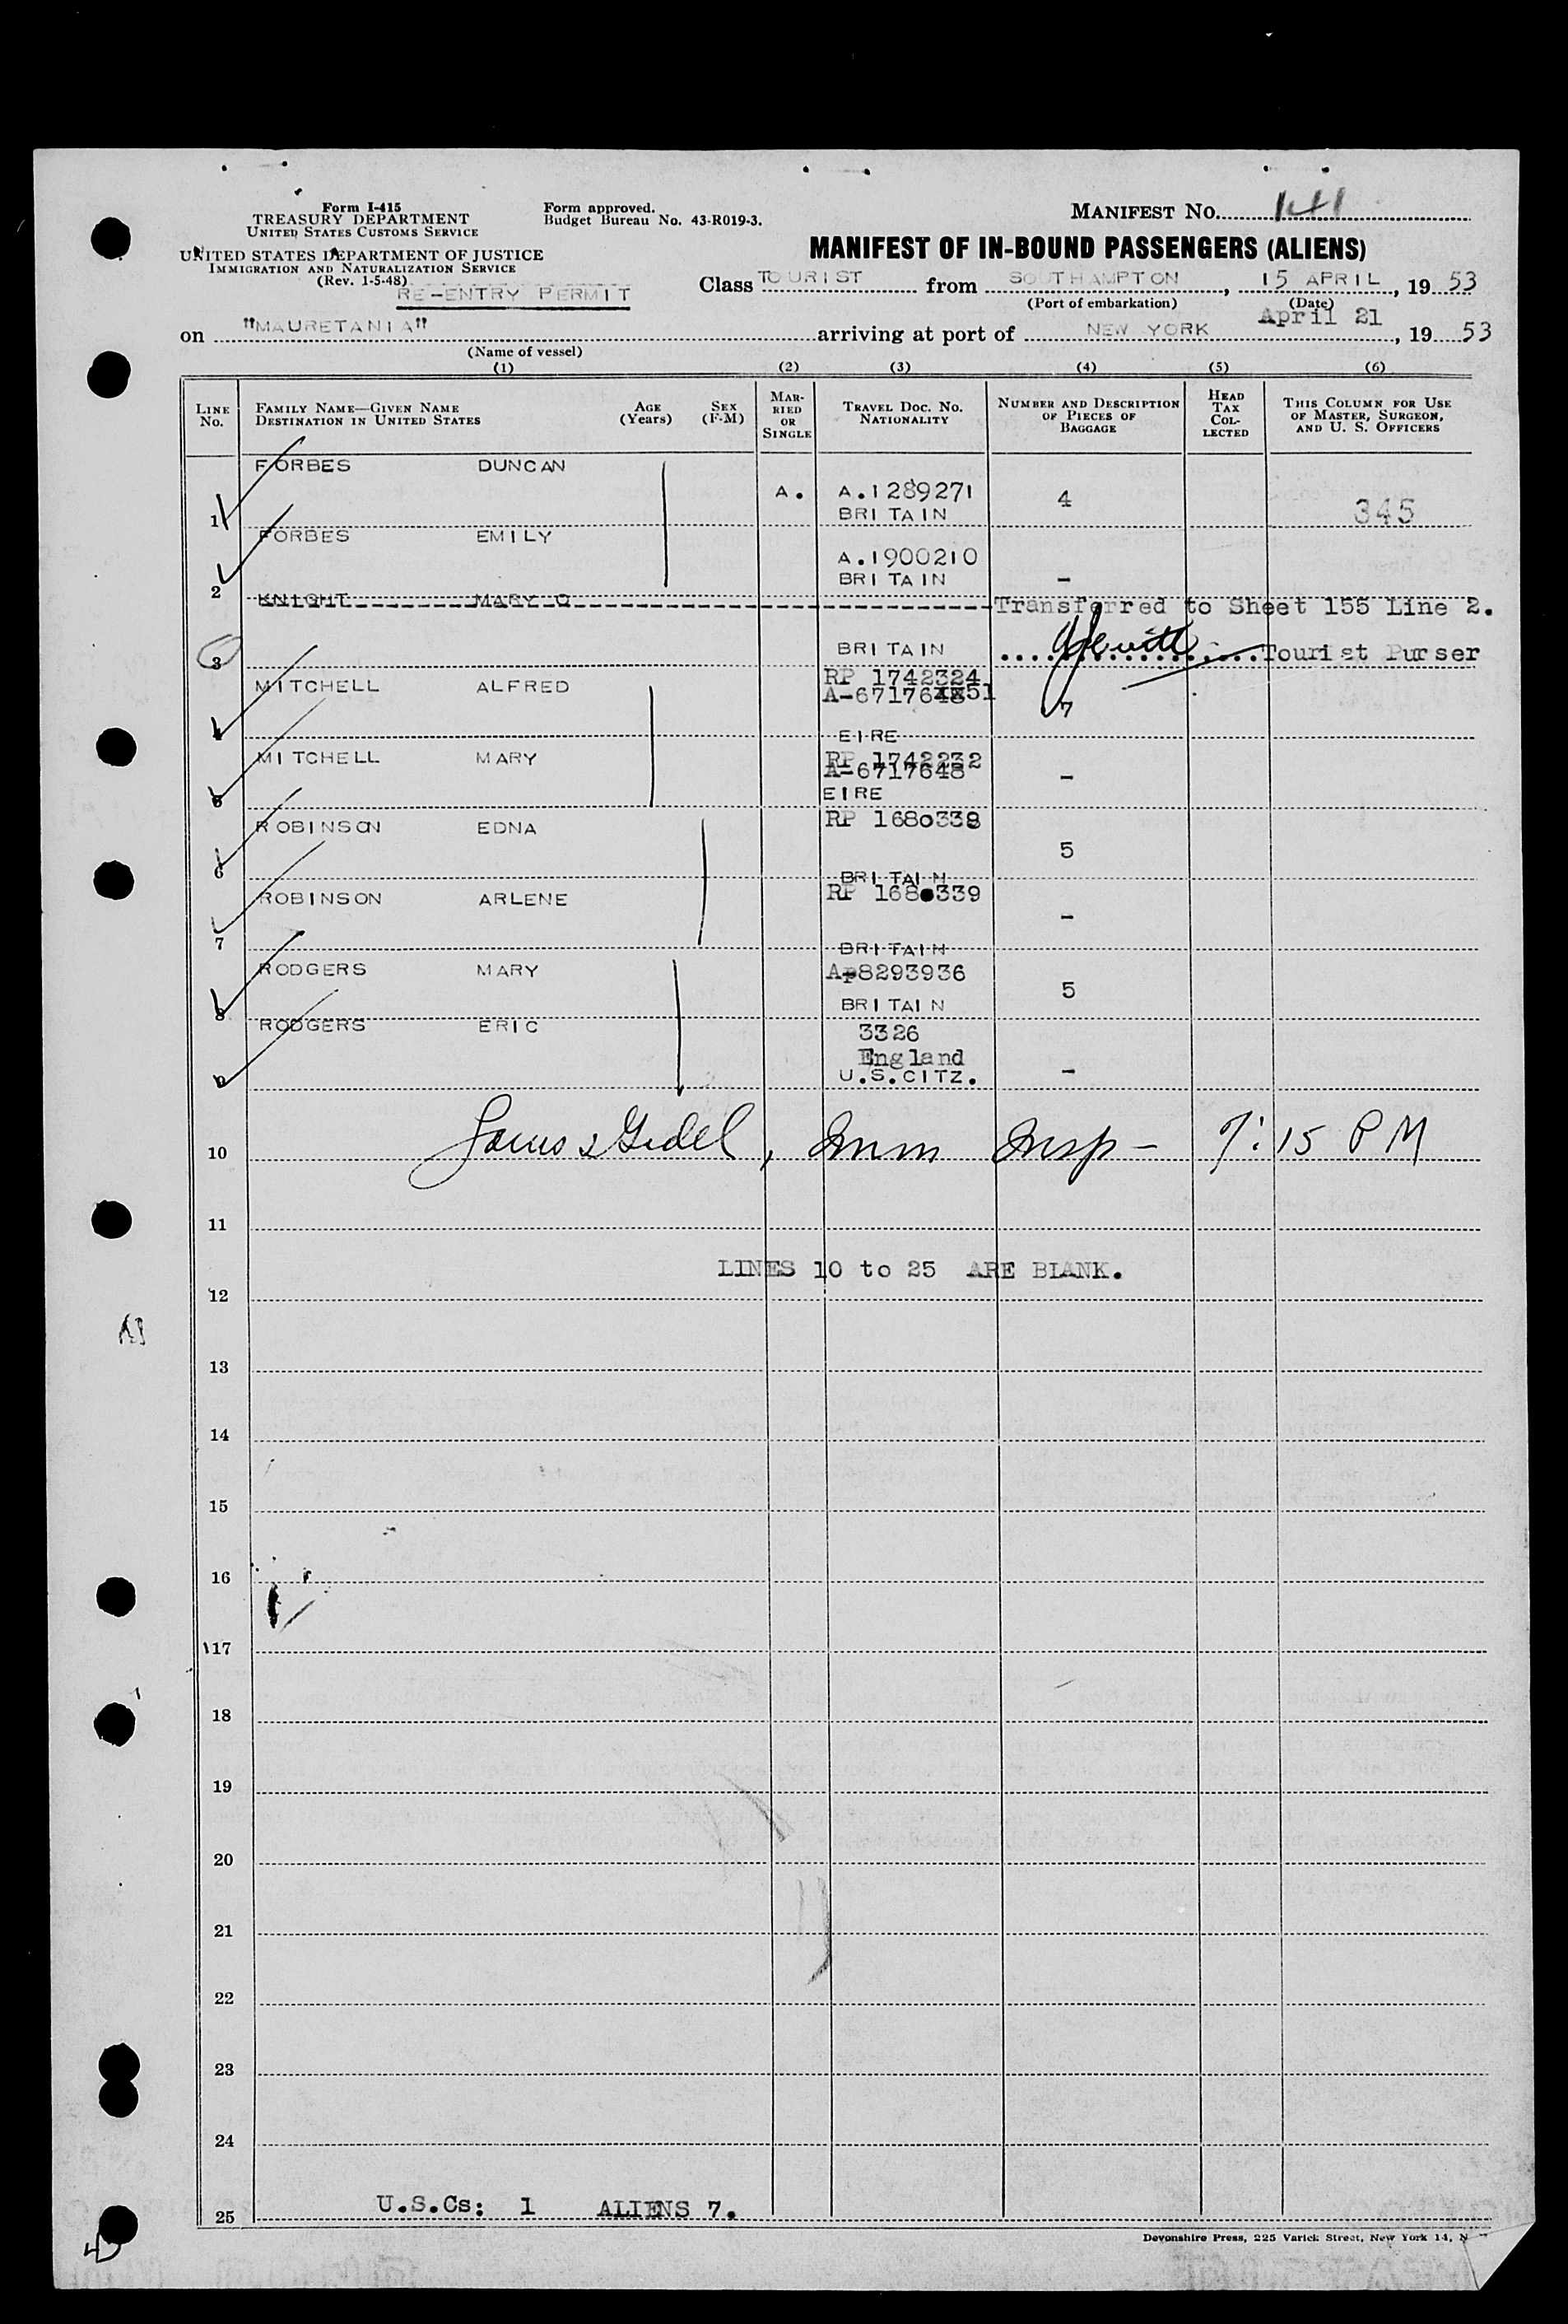 Form I-415
TREASURY DEPARTMENT
UNITED STATES CUSTOMS SERVICE
UNITED STATES DEPARTMENT OF JUSTICE
IMMIGRATION AND NATURALIZATION SERVICE
(Rev. 1-5-48)
RE-ENTRY PERMIT
Form approved.
Budget Bureau No. 43-R019-3.
MANIFEST No. 141
MANIFEST OF IN-BOUND PASSENGERS (ALIENS)
Class TOURIST from SOUTHAMPTON, 15 APRIL, 19 53
(Port of embarkation) (Date)
on "MAURETANIA" arriving at port of NEW YORK April 21, 19 53
(Name of vessel)
(1) (2) (3) (4) (5) (6)
LINE No. FAMILY NAME—GIVEN NAME DESTINATION IN UNITED STATES AGE (Years) SEX (F-M) MARRIED OR SINGLE TRAVEL DOC. NO. NATIONALITY NUMBER AND DESCRIPTION OF PIECES OF BAGGAGE HEAD TAX COLLECTED THIS COLUMN FOR USE OF MASTER, SURGEON, AND U. S. OFFICERS
FORBES DUNCAN
1 A. A.1289271 4
BRITAIN 345
FORBES EMILY
A.1900210
2 BRITAIN -
KNIGHT MARY C Transferred to Sheet 155 Line 2.
3 BRITAIN Tourist Purser
RP 1742324
MITCHELL ALFRED A-6717651 7
4 EIRE
MITCHELL MARY RP 1742232
A-6717648 -
5 EIRE
ROBINSON EDNA RP 1680338
6 5
BRITAIN
ROBINSON ARLENE RP 1680339
7 -
BRITAIN
RODGERS MARY A-8293936
8 BRITAIN 5
RODGERS ERIC 3326
England
9 U.S.CITZ. -
10 Imm Insp - 7:15 PM
11
LINES 10 to 25 ARE BLANK.
12
13
14
15
16
17
18
19
20
21
22
23
24
25 U.S.Cs: 1 ALIENS 7.
Devonshire Press, 225 Varick Street, New York 14, N